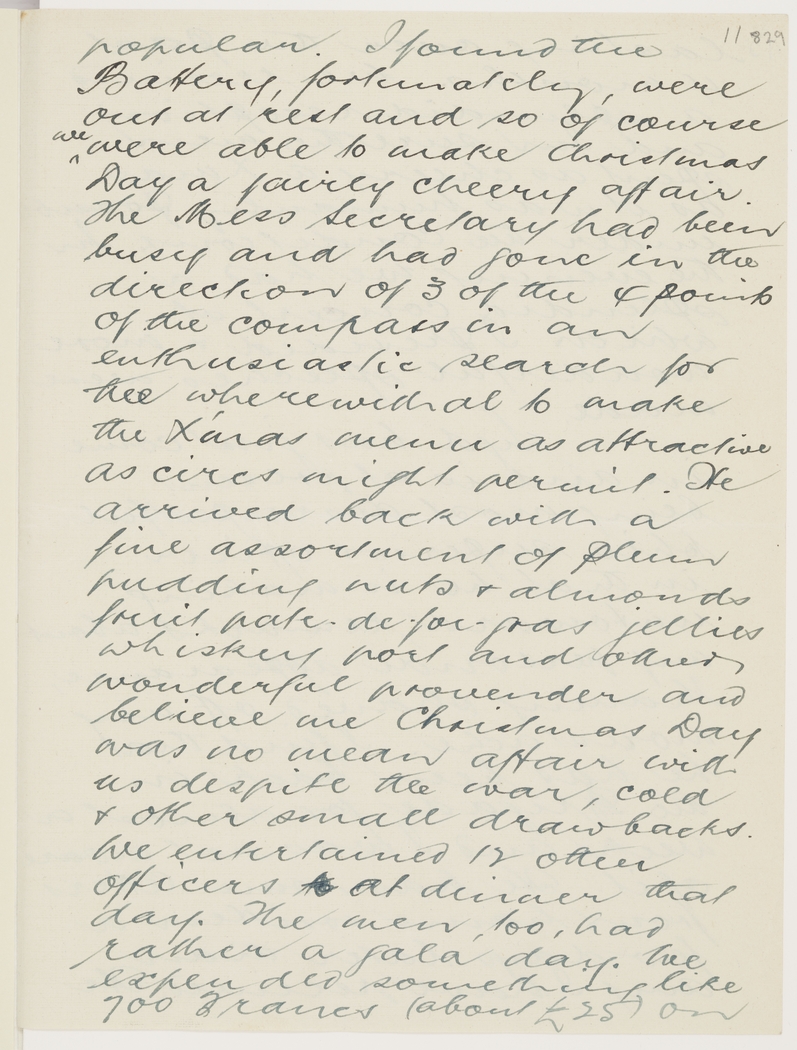 11 829
popular. I found the
Battery, fortunately, were
out at rest and so of course
we were able to make Christmas
Day a fairly cheery affair.
The Mess Secretary had been
busy and had gone in the
direction of 3 of the 4 points
of the compass in an
enthusiastic search for
the wherewithal to make
the X'mas menu as attractive
as circs might permit. He
arrived back with a
fine assortment of plum
pudding nuts + almonds
fruit pate-de-foi-gras jellies
whiskey port and other
wonderful provender and
believe me Christmas Day
was no mean affair with
us despite the war, cold
+ other small drawbacks.
We entertained 12 other
officers at dinner that
day. The men, too, had
rather a gala day. We
expended something like
700 Francs (about £25) on